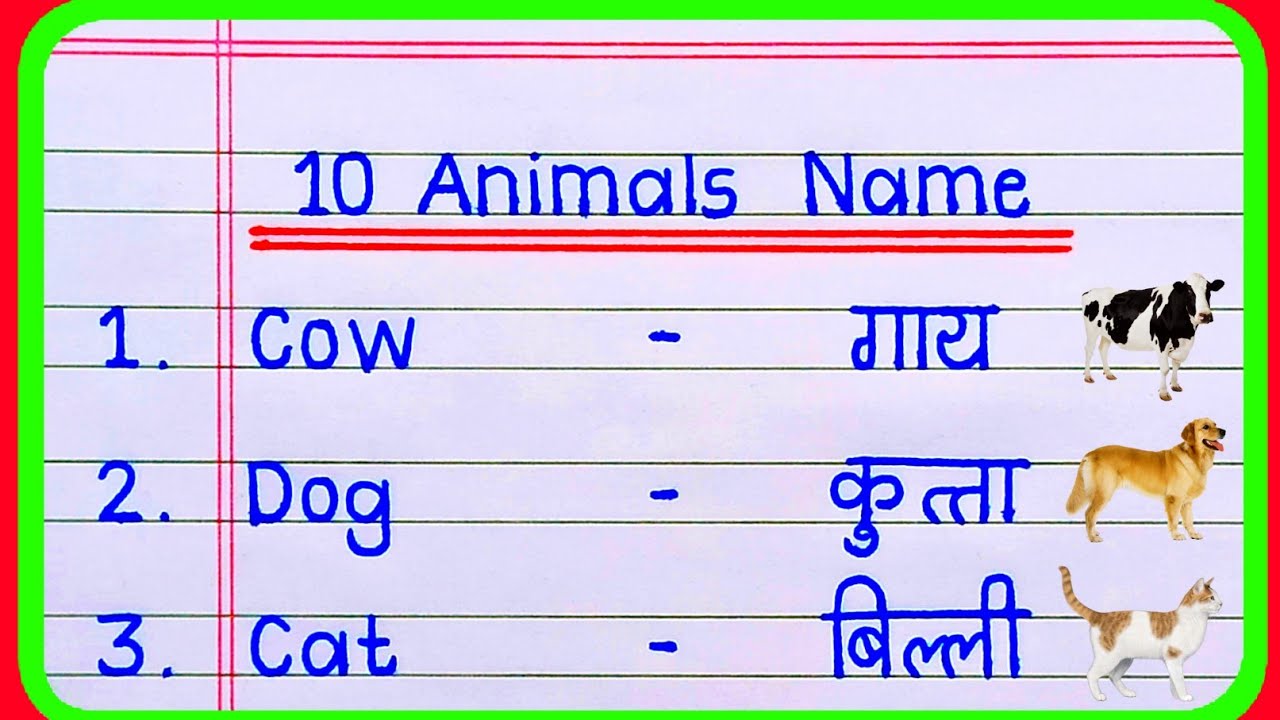 10 Animals Name
1. Cow - गाय
2. Dog - कुत्ता
3. Cat - बिल्ली